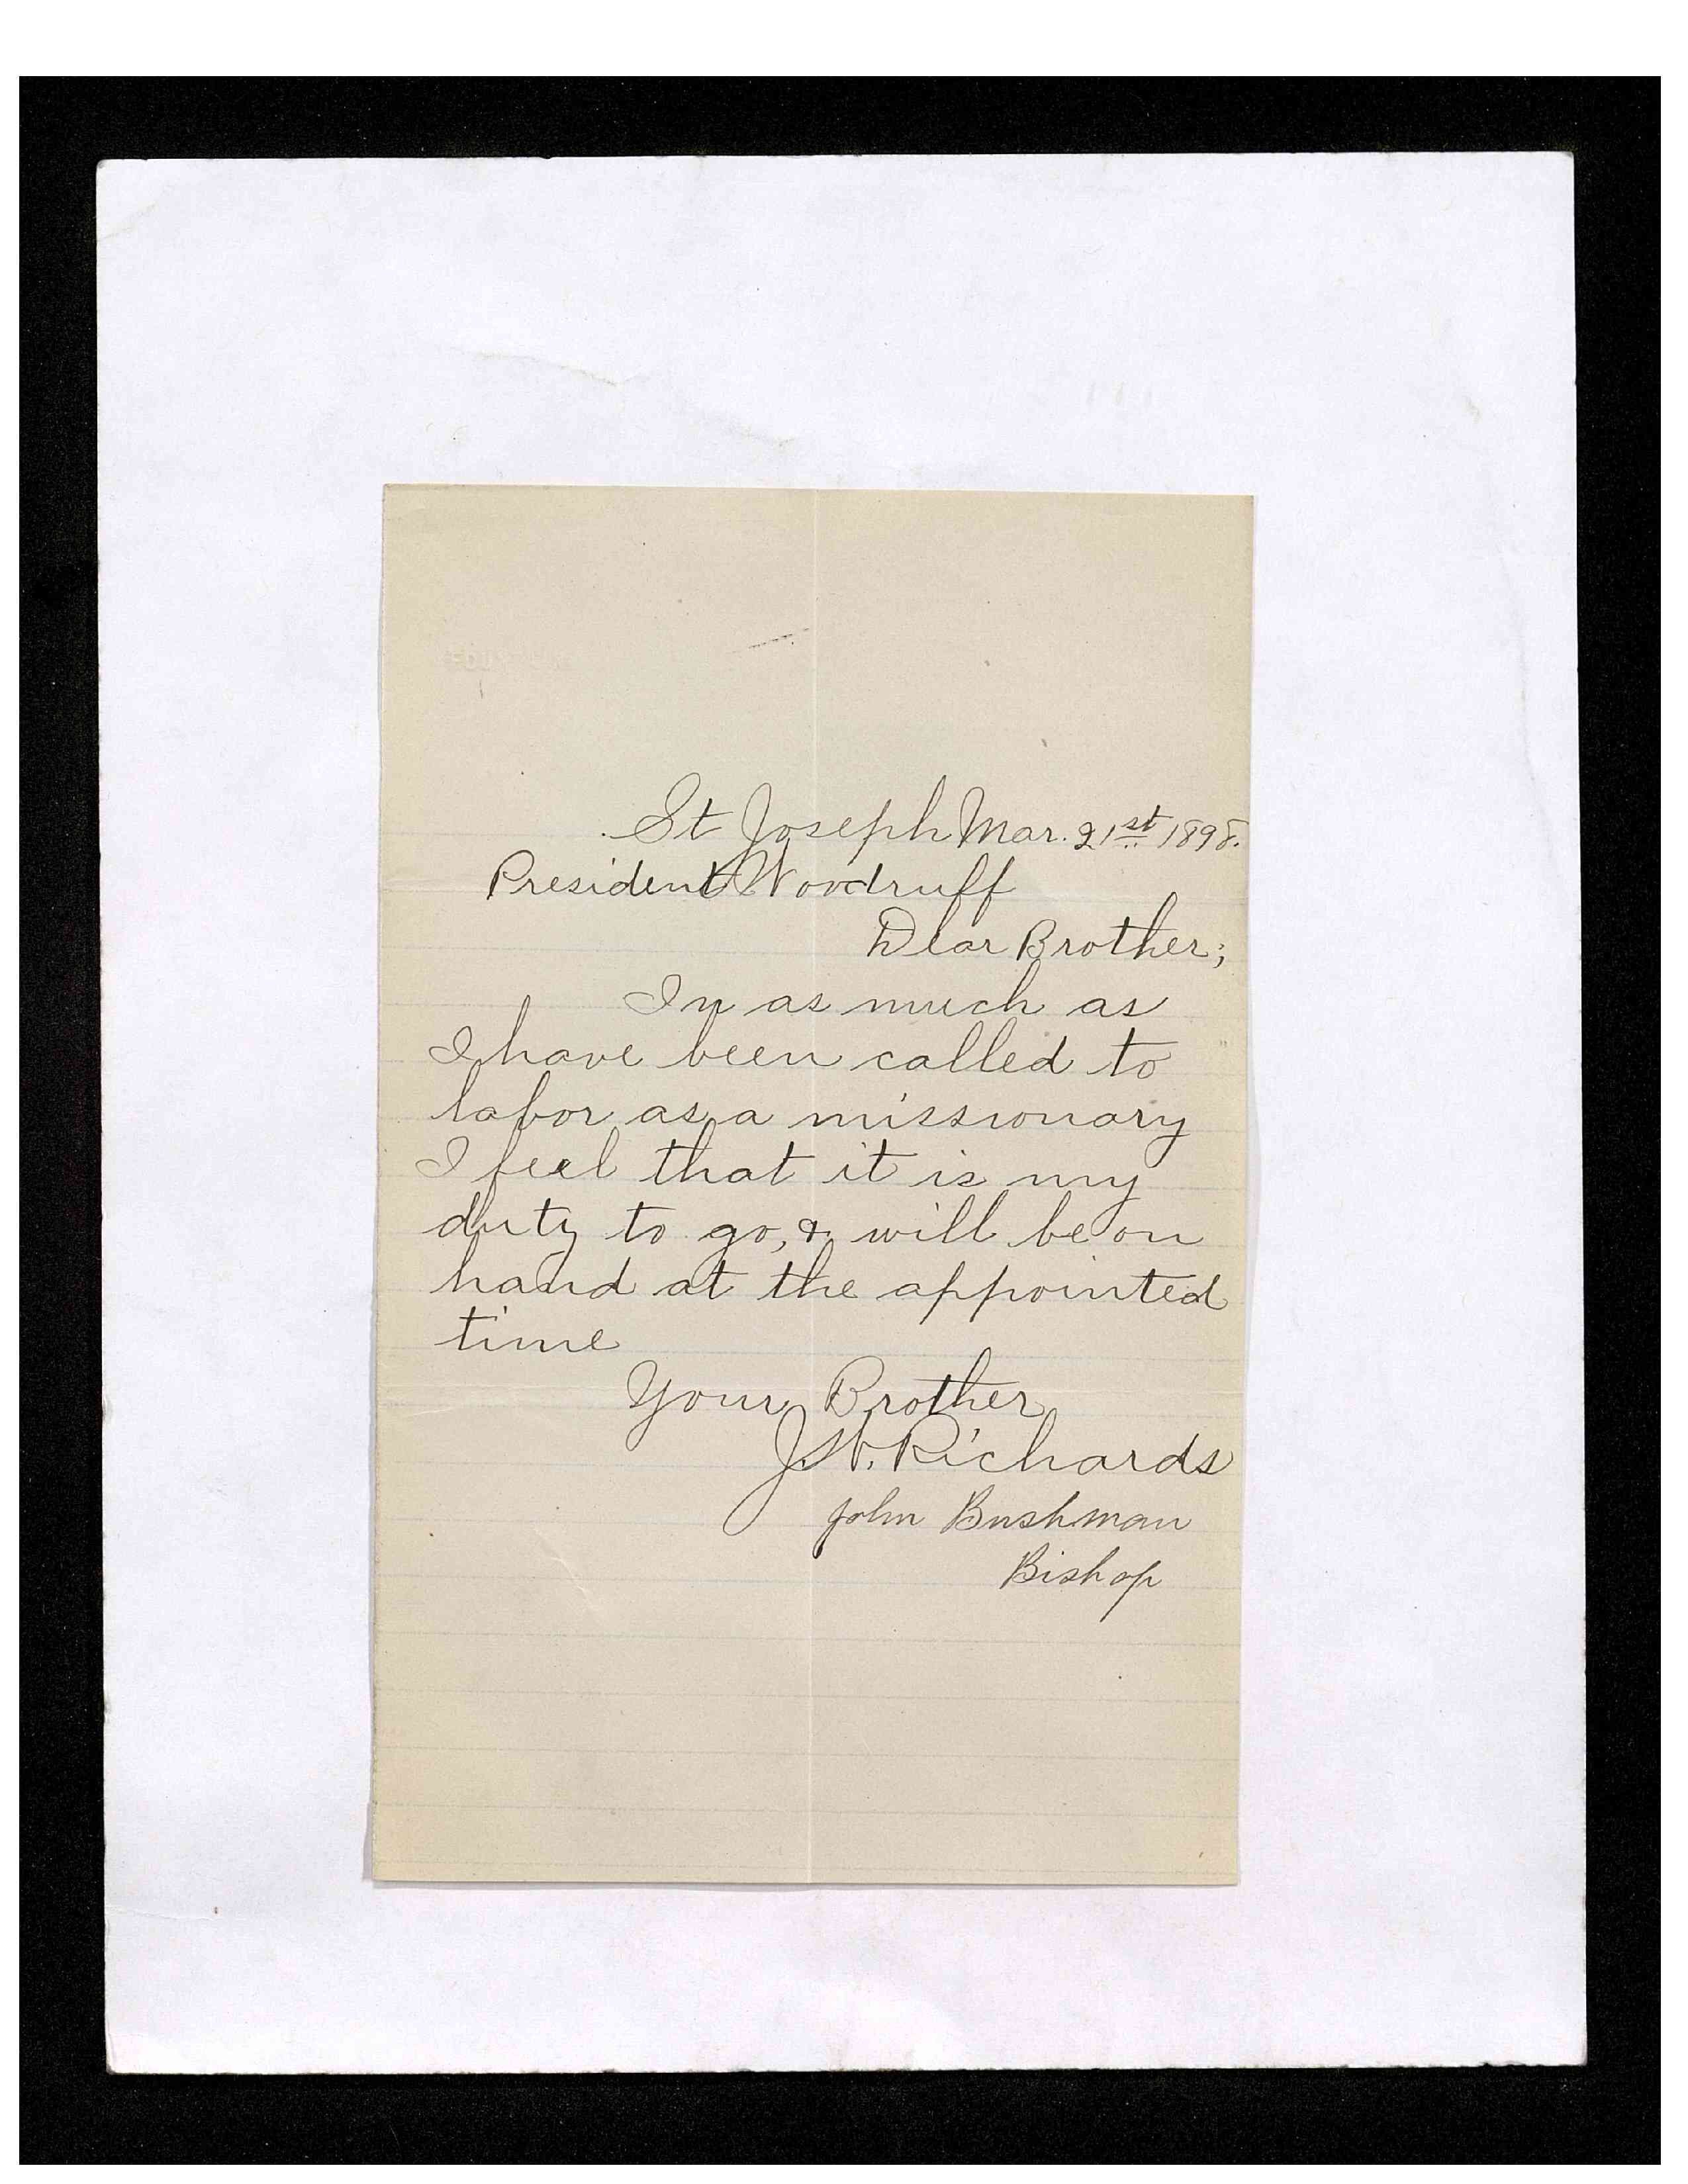 St Joseph Mar. 21st 1898.
President Woodruff
Dear Brother;
In as much as
I have been called to
labor as a missionary
I feel that it is my
duty to go, & will be on
hand at the appointed
time
Your Brother
J.W. Richards
John Bushman
Bishop